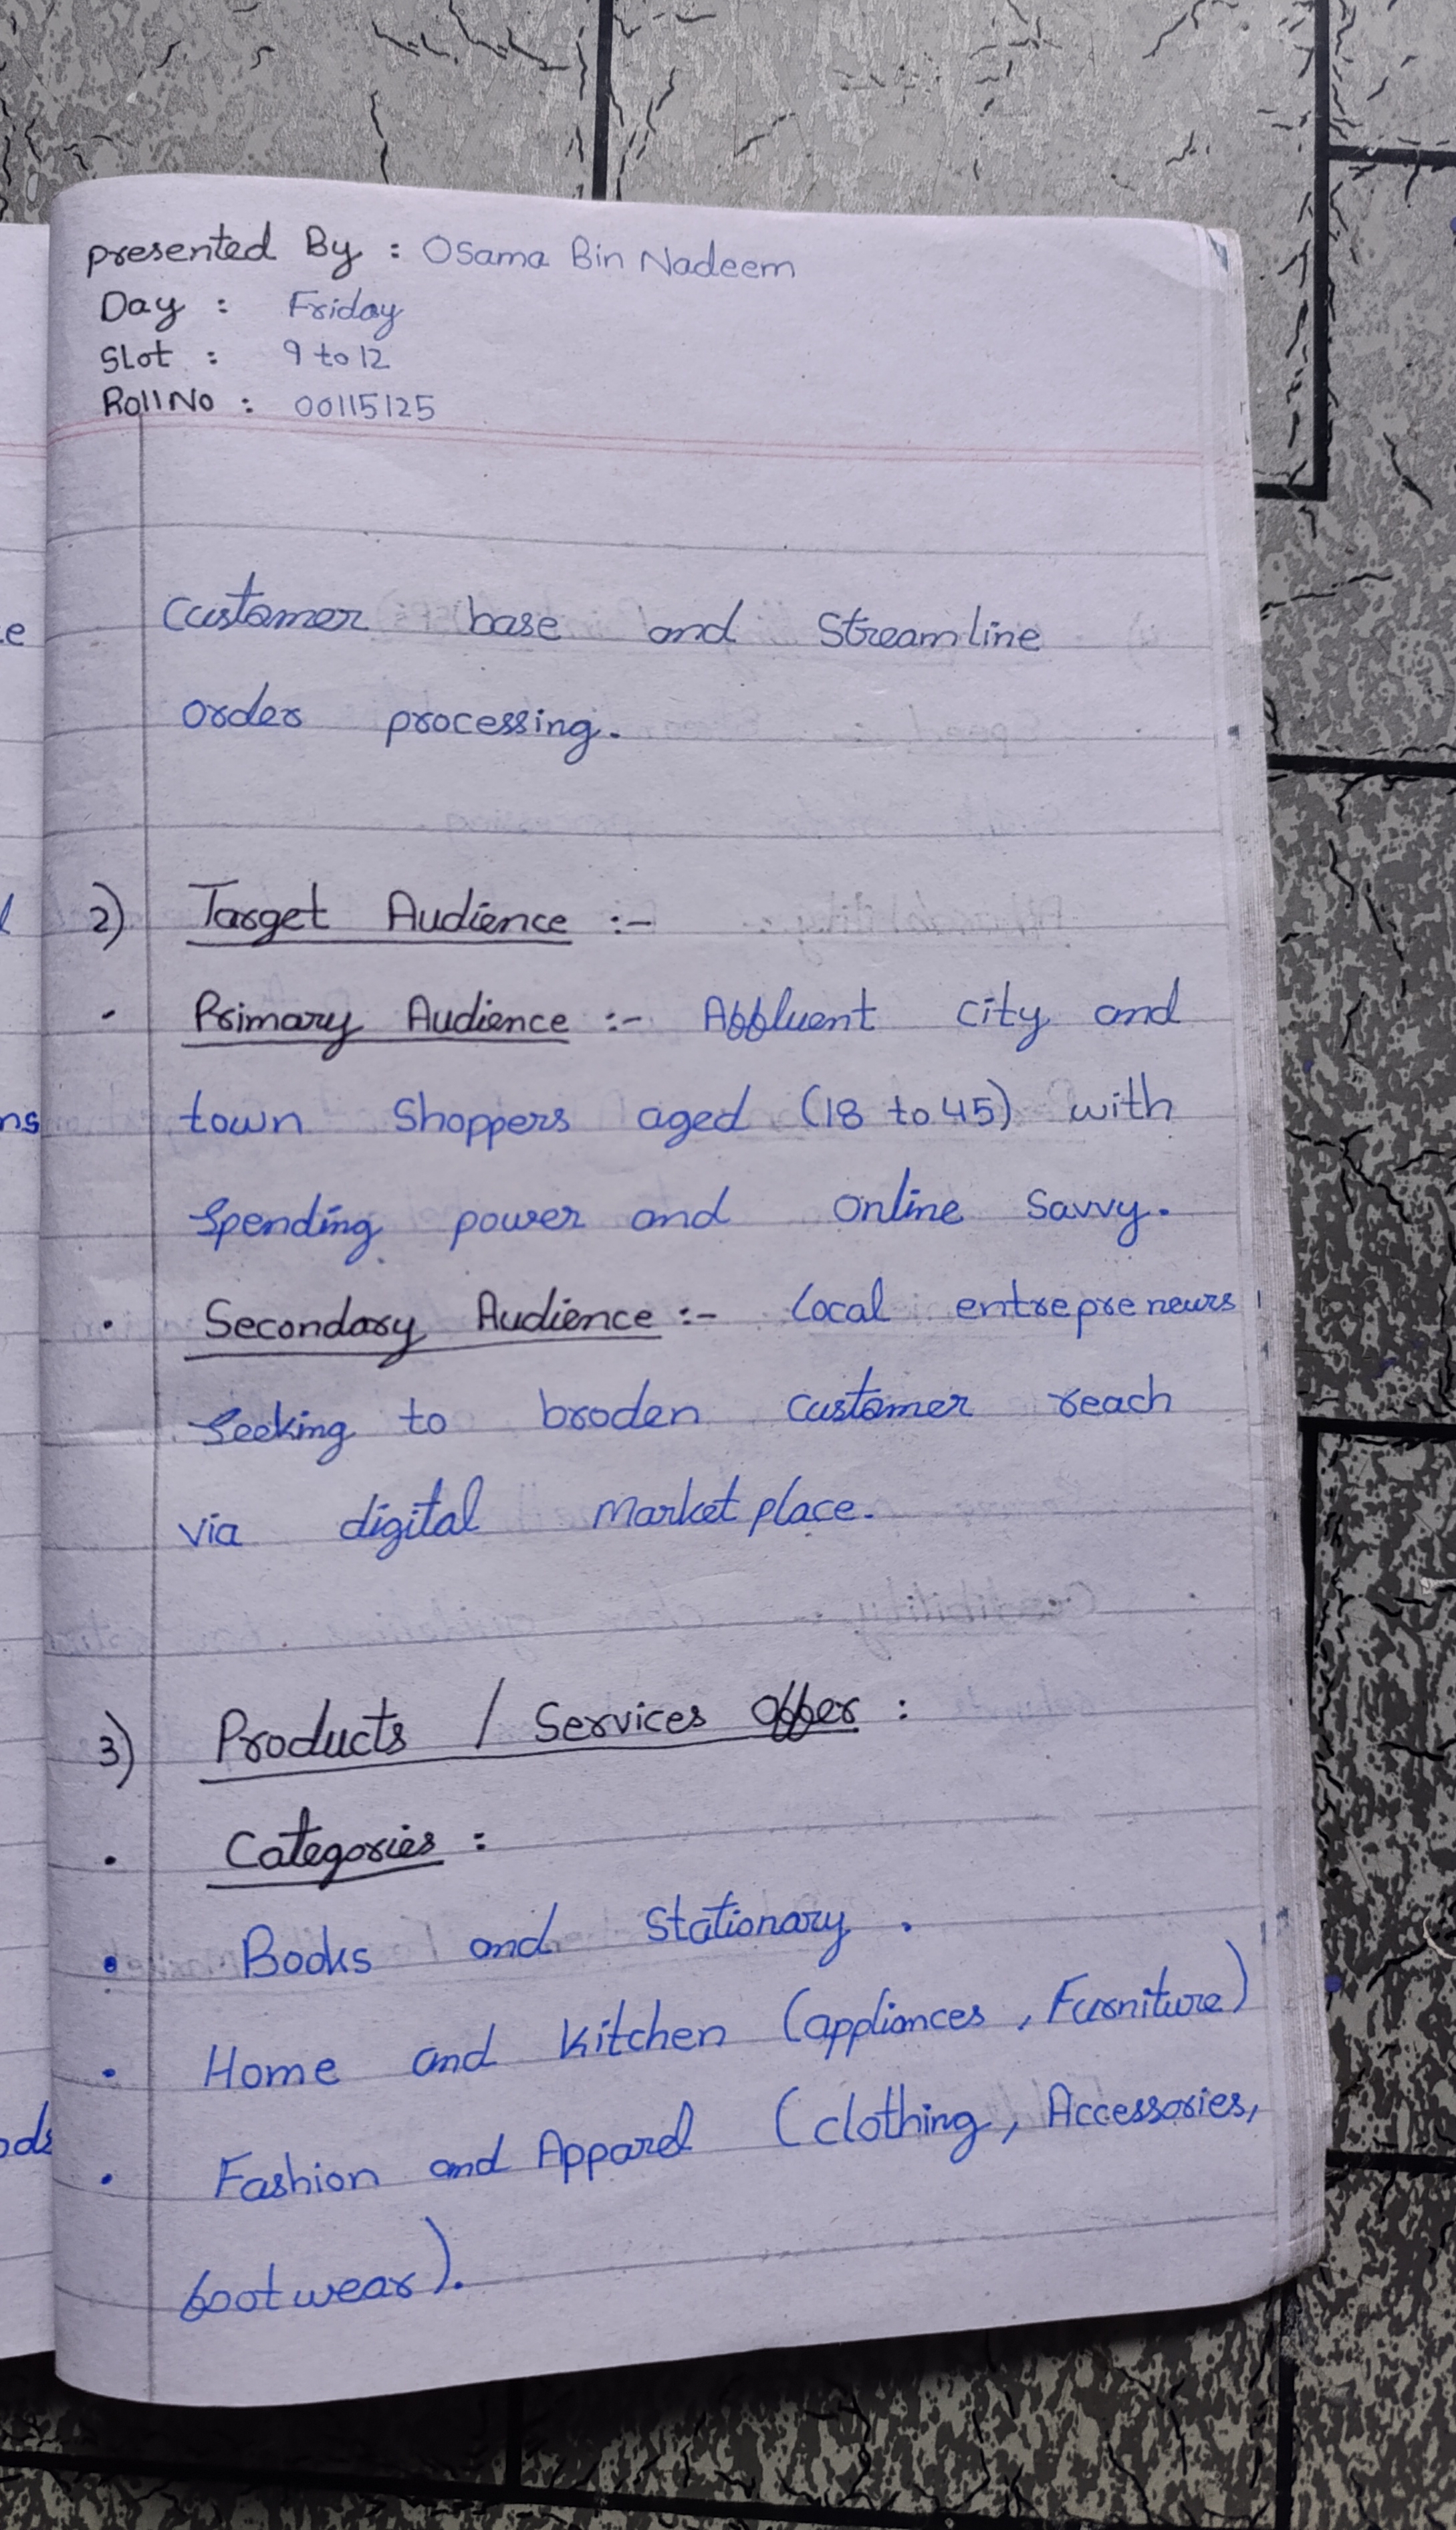 presented By : Osama Bin Nadeem
Day : Friday
Slot : 9 to 12
Roll No : 00115125
Customer base and Streamline
order processing.
2) Target Audience :-
- Primary Audience :- Affluent city and
town Shoppers aged (18 to 45) with
Spending power and online Savvy.
• Secondary Audience :- local entrepreneurs
Seeking to broden customer reach
via digital marketplace.
3) Products / Services Offer :
• Categories :
• Books and Stationary .
• Home and Kitchen (appliances , Furniture)
• Fashion and Apparel (clothing, Accessories,
footwear).